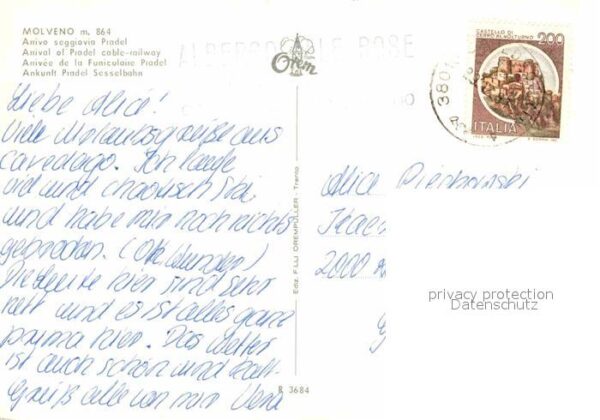 MOLVENO m. 864
Arrivo seggiovia Pradel
Arrival of Pradel cable-railway
Arrivée de la Funiculaire Pradel
Ankunft Pradel Sesselbahn
ALBERGO LE ROSE
Orem
CASTELLO DI
CERRO AL VOLTURNO
200
ITALIA
380
Liebe Alice!
Viele Urlaubsgrüße aus
Cavedago. Ich
und chaotisch Ski
und habe mir noch nichts
gebrochen. (Oh, Wunder)
Die Leute hier sind sehr
nett und es ist alles ganz
prima hier. Das Wetter
ist auch schön und kalt.
Grüß alle von mir
Alice
2000
Ediz. F.lli OREMPULLER - Trento
R 3684
privacy protection
Datenschutz